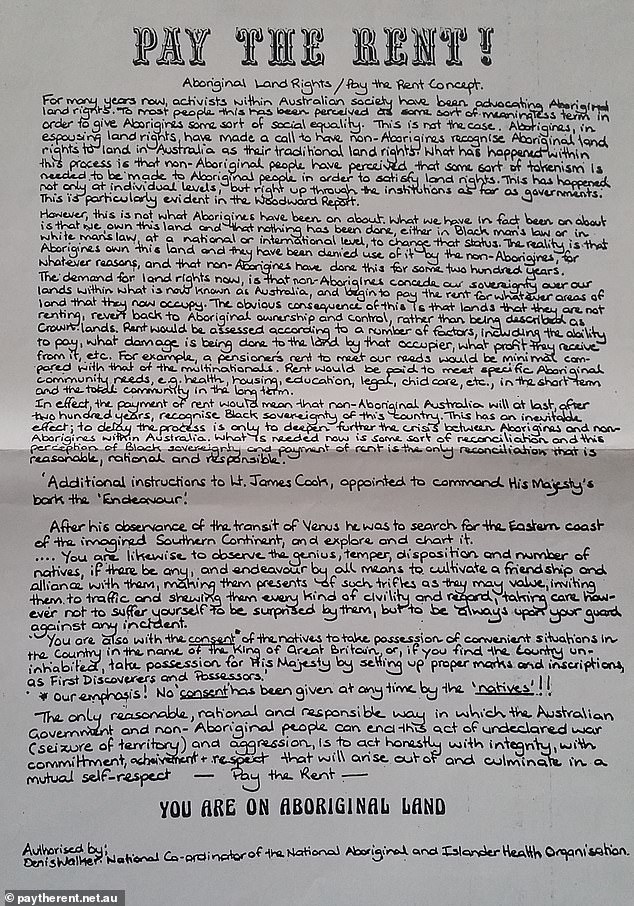 PAY THE RENT!
Aboriginal Land Rights / Pay the Rent Concept.
For many years now, activists within Australian society have been advocating Aboriginal
land rights. To most people this has been perceived as some sort of meaningless term in
order to give Aborigines some sort of social equality. This is not the case. Aborigines, in
espousing land rights, have made a call to have non-Aborigines recognise Aboriginal land
rights to land in Australia as their traditional land rights. What has happened within
this process is that non-Aboriginal people have perceived that some sort of tokenism is
needed to be made to Aboriginal people in order to satisfy land rights. This has happened
not only at individual levels, but right up through the institutions as far as governments.
This is particularly evident in the Woodward Report.
However, this is not what Aborigines have been on about. What we have in fact been on about
is that we own this land and that nothing has been done, either in Black man's law or in
white man's law, at a national or international level, to change that status. The reality is that
Aborigines own this land and they have been denied use of it by the non-Aborigines, for
whatever reasons, and that non-Aborigines have done this for some two hundred years.
The demand for land rights now, is that non-Aborigines concede our sovereignty over our
lands within what is now known as Australia, and begin to pay the rent for whatever areas of
land that they now occupy. The obvious consequence of this is that lands that they are not
renting, revert back to Aboriginal ownership and control, rather than being described as
Crown lands. Rent would be assessed according to a number of factors, including the ability
to pay, what damage is being done to the land by that occupier, what profit they receive
from it, etc. For example, a pensioner's rent to meet our needs would be minimal com-
pared with that of the multinationals. Rent would be paid to meet specific Aboriginal
community needs, e.g. health, housing, education, legal, child care, etc., in the short term
and the total community in the long term.
In effect, the payment of rent would mean that non-Aboriginal Australia will at last, after
two hundred years, recognise Black sovereignty of this country. This has an inevitable
effect; to delay the process is only to deepen further the crisis between Aborigines and non-
Aborigines within Australia. What is needed now is some sort of reconciliation and this
perception of Black sovereignty and payment of rent is the only reconciliation that is
reasonable, rational and responsible.
'Additional instructions to Lt. James Cook, appointed to command His Majesty's
bark the 'Endeavour'.
After his observance of the transit of Venus he was to search for the Eastern coast
of the imagined Southern Continent, and explore and chart it.
.... You are likewise to observe the genius, temper, disposition and number of
natives, if there be any, and endeavour by all means to cultivate a friendship and
alliance with them, making them presents of such trifles as they may value, inviting
them to traffic and shewing them every kind of civility and regard, taking care how-
ever not to suffer yourself to be surprised by them, but to be always upon your guard
against any incident.
You are also with the consent* of the natives to take possession of convenient situations in
the Country in the name of the King of Great Britain, or, if you find the Country un-
inhabited, take possession for His Majesty by setting up proper marks and inscriptions,
as First Discoverers and Possessors.'
* our emphasis! No 'consent' has been given at any time by the 'natives'!!
The only reasonable, rational and responsible way in which the Australian
Government and non-Aboriginal people can end this act of undeclared war
(seizure of territory) and aggression, is to act honestly with integrity, with
committment, achievement + respect that will arise out of and culminate in a
mutual self-respect — Pay the Rent —
YOU ARE ON ABORIGINAL LAND
Authorised by;
Denis Walker. National Co-ordinator of the National Aboriginal and Islander Health Organisation.
paytherent.net.au